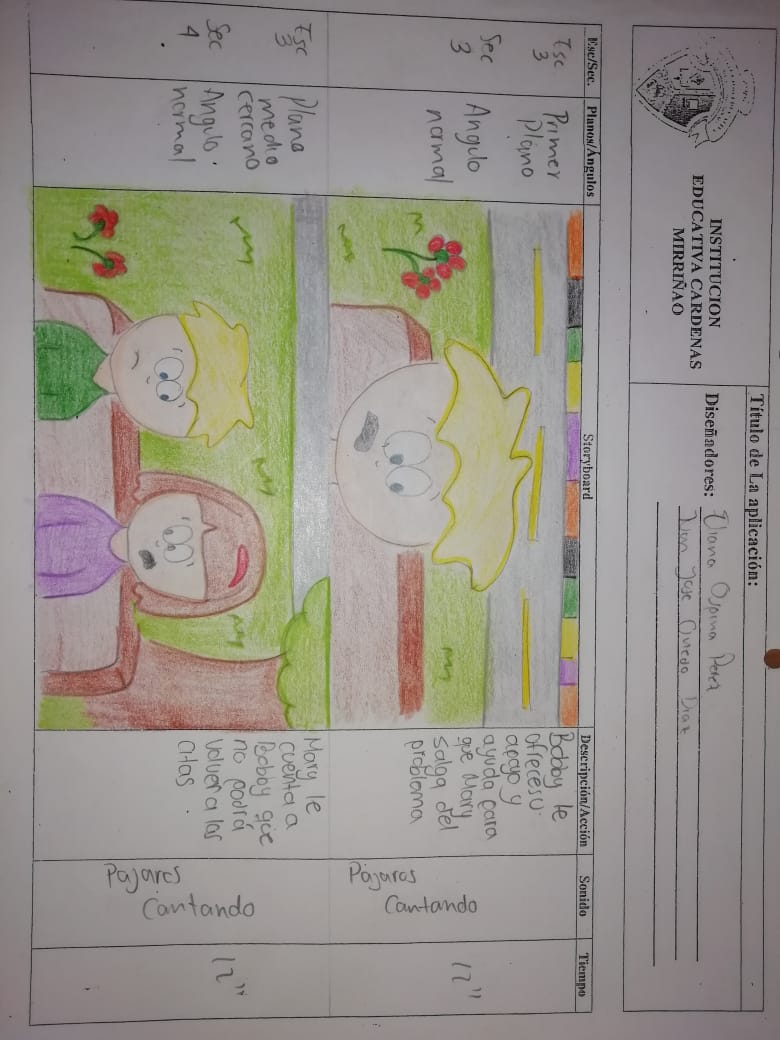 INSTITUCION
EDUCATIVA CARDENAS
MIRRIÑAO
Título de La aplicación:
Diseñadores: Eliana Ospina Perez
Juan Jose Oviedo Diaz
Esc/Sec.
Planos/Ángulos
Storyboard
Descripción/Acción
Sonido
Tiempo
Esc
3
Sec
3
Primer
Plano
Angulo
normal
Bobby le
ofrece su
apoyo y
ayuda para
que Mary
salga del
problema
Pajaros
Cantando
12"
Esc
3
Sec
4
Plano
medio
cercano
Angulo
normal
Mary le
cuenta a
Bobby que
no podrá
volver a las
citas
Pajaros
Cantando
12"